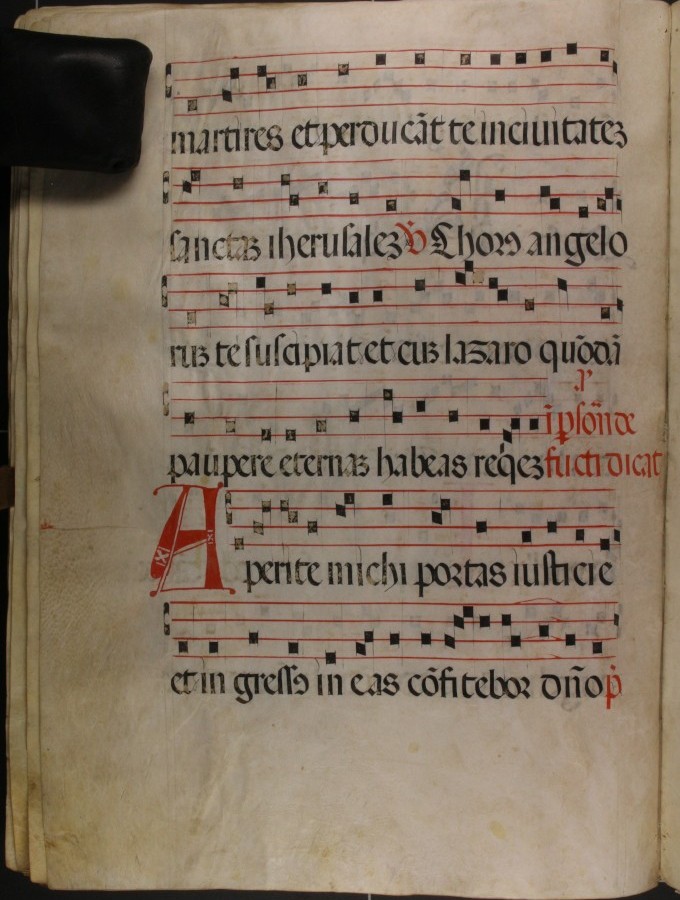 martires et perducāt te in ciuitatez
sanctaz iherusalez ℣ Chorꝰ angelo
ruz te suscipiat et cuz lazaro quōdā
paupere eternaz habeas req̇ez fucti dicat
Aperite michi portas iusticie
et in gressꝰ in eas cōfitebor dn̄o p̄